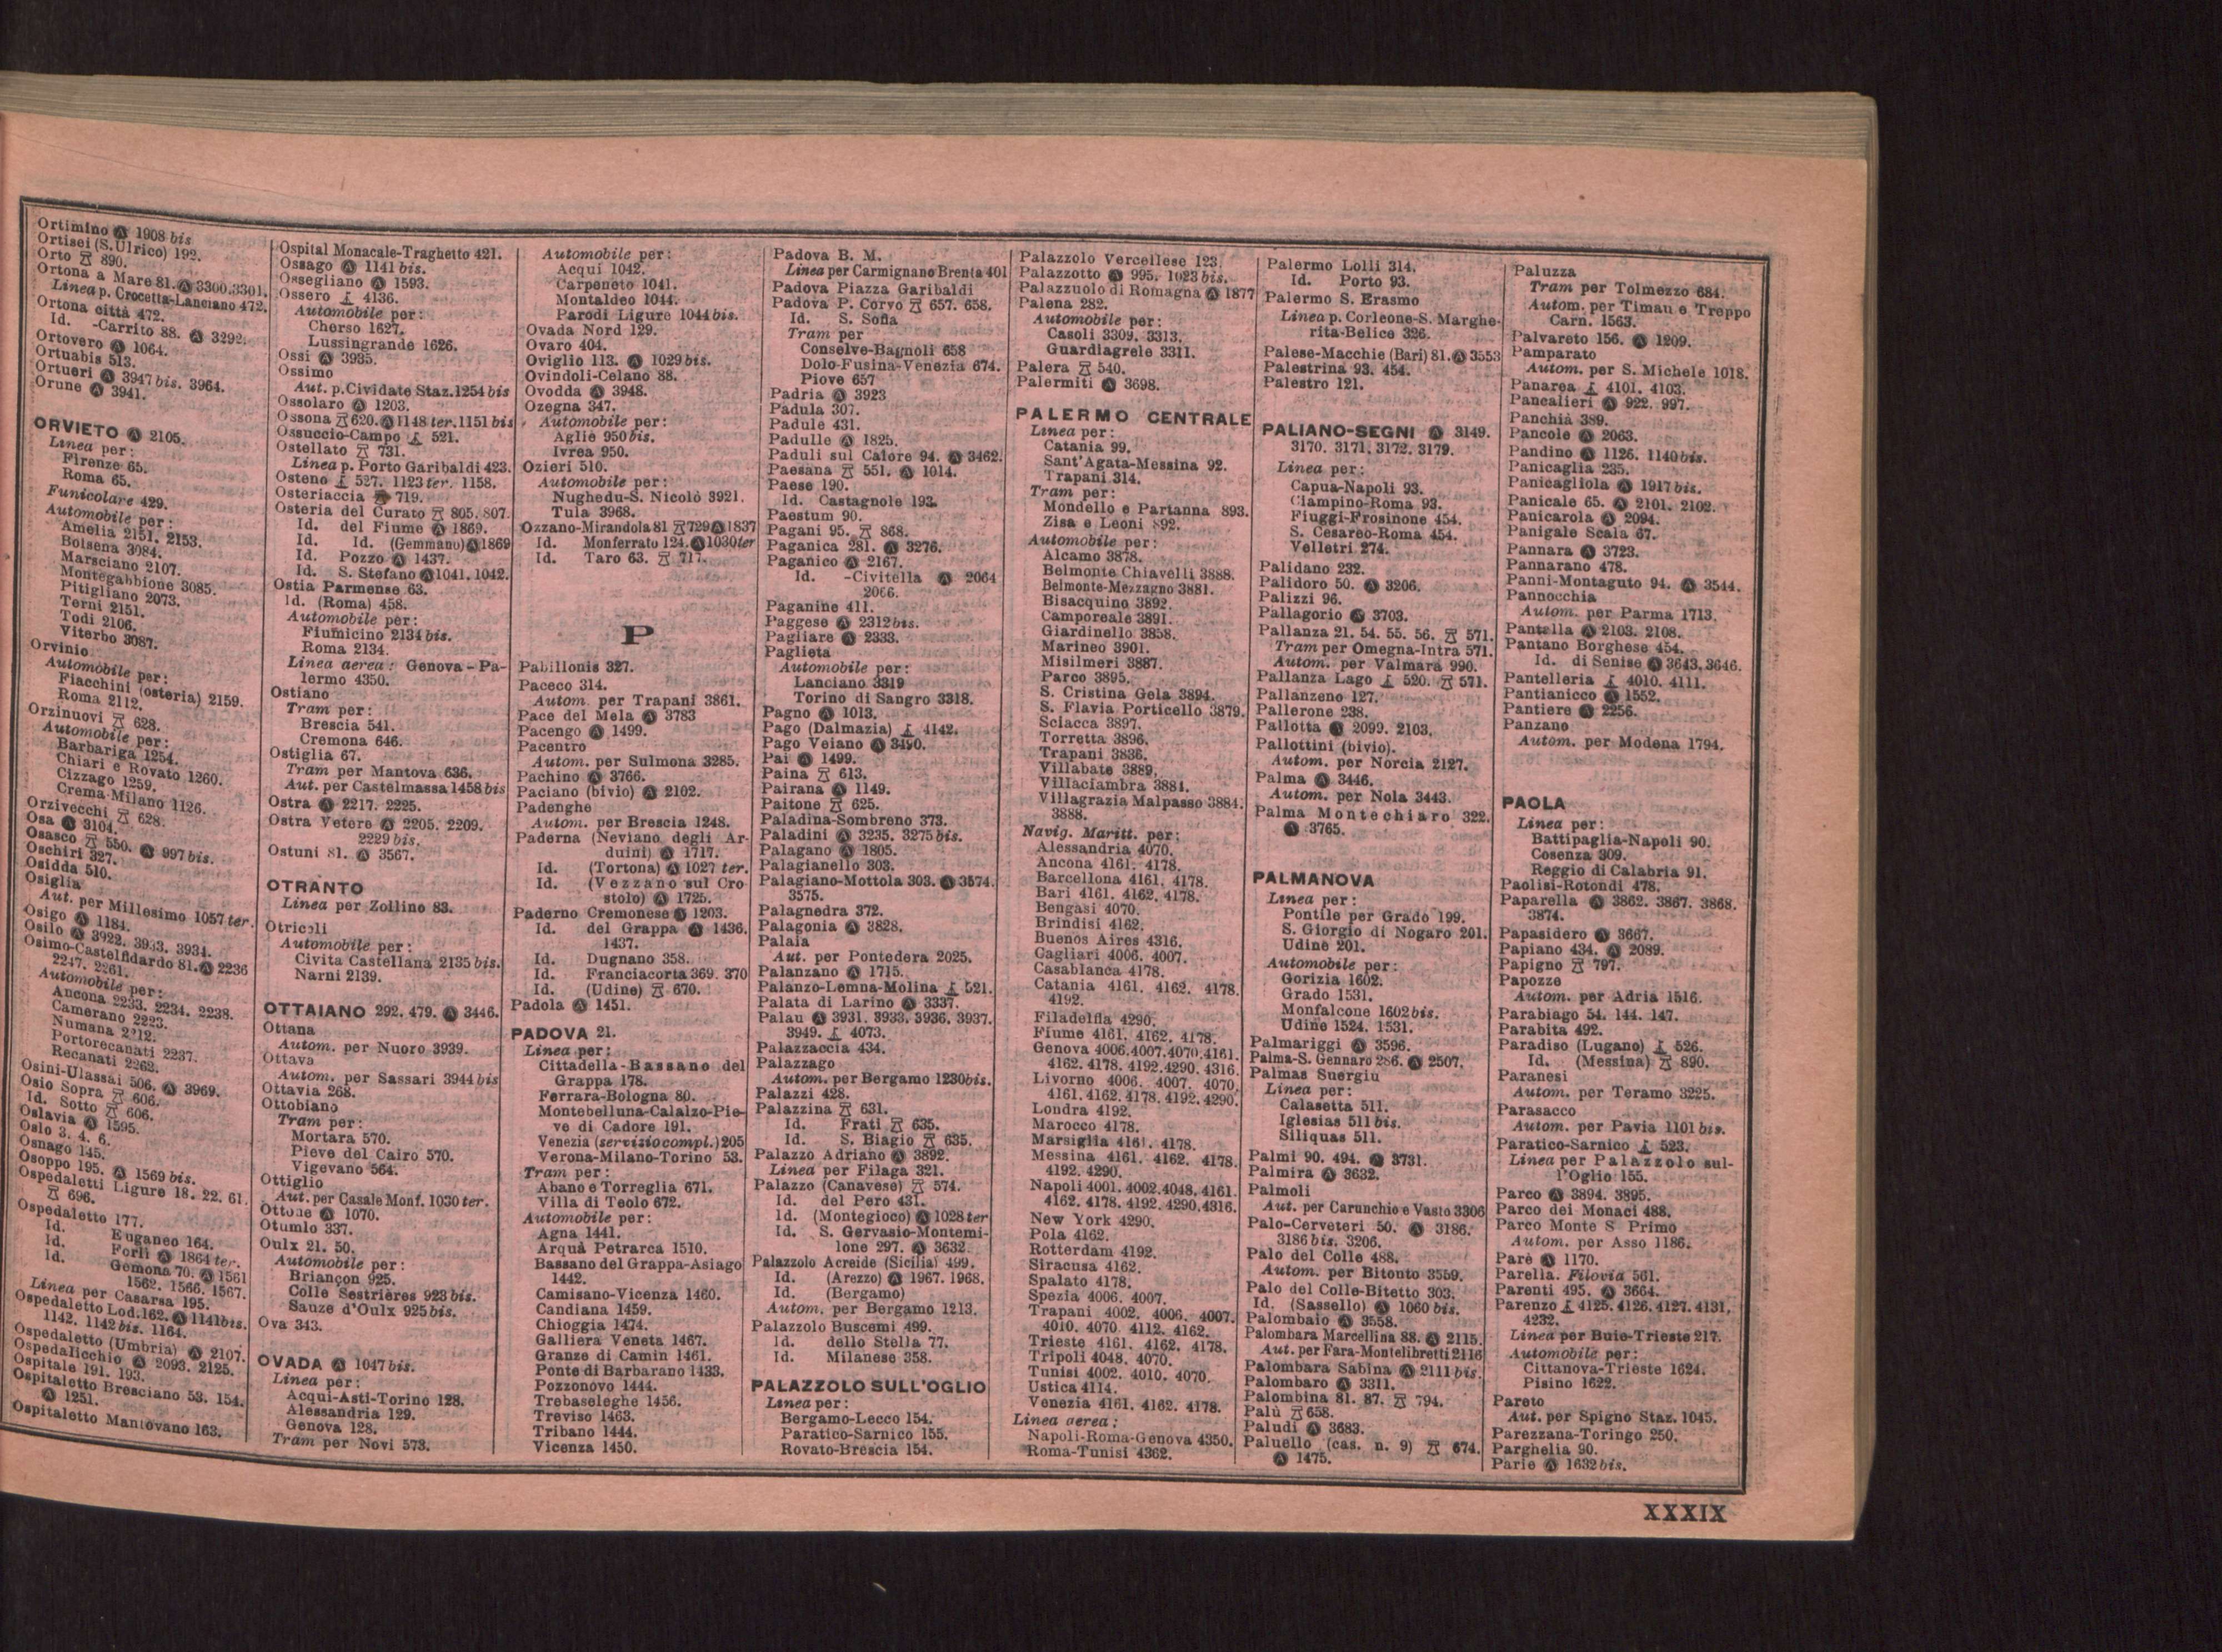 Ortimino 1908 bis
Ortisei (S. Ulrico) 192.
Orto 890.
Ortona a Mare 81. 3300.3301.
Linea p. Crocetta-Lanciano 472.
Ortona città 472.
Id. -Carrito 88. 3292.
Ortovero 1064.
Ortuabis 513.
Ortueri 3947 bis. 3964.
Orune 3941.
ORVIETO 2105.
Linea per:
Firenze 65.
Roma 65.
Funicolare 429.
Automobile per:
Amelia 2151. 2153.
Bolsena 3084.
Marsciano 2107.
Montegabbione 3085.
Pitigliano 2073.
Terni 2151.
Todi 2106.
Viterbo 3087.
Orvinio
Automobile per:
Fiacchini (osteria) 2159.
Roma 2112.
Orzinuovi 628.
Automobile per:
Barbariga 1254.
Chiari e Rovato 1260.
Cizzago 1259.
Crema-Milano 1126.
Orzivecchi 628.
Osa 3104.
Osasco 550. 997 bis.
Oschiri 327.
Osidda 510.
Osiglia
Aut. per Millesimo 1057 ter.
Osigo 1184.
Osilo 3922. 3933. 3934.
Osimo-Castelfidardo 81. 2236
2247. 2261.
Automobile per:
Ancona 2233. 2234. 2238.
Camerano 2223.
Numana 2212.
Portorecanati 2237.
Recanati 2262.
Osini-Ulassai 506. 3969.
Osio Sopra 606.
Id. Sotto 606.
Oslavia 1595.
Oslo 3. 4. 6.
Osnago 145.
Osoppo 195. 1569 bis.
Ospedaletti Ligure 18. 22. 61.
696.
Ospedaletto 177.
Id. Euganeo 164.
Id. Forlì 1864 ter.
Id. Gemona 70. 1561
1562. 1566. 1567.
Linea per Casarsa 195.
Ospedaletto Lod. 162. 1141bis.
1142. 1142 bis. 1164.
Ospedaletto (Umbria) 2107.
Ospedalicchio 2093. 2125.
Ospitale 191. 193.
Ospitaletto Bresciano 53. 154.
1251.
Ospitaletto Mantovano 163.
Ospital Monacale-Traghetto 421.
Ossago 1141 bis.
Ossegliano 1593.
Ossero 4136.
Automobile per:
Cherso 1627.
Lussingrande 1626.
Ossi 3935.
Ossimo
Aut. p. Cividate Staz. 1254 bis
Ossolaro 1203.
Ossona 620. 1148 ter. 1151 bis
Ossuccio-Campo 521.
Ostellato 731.
Linea p. Porto Garibaldi 423.
Osteno 527. 1123 ter. 1158.
Osteriaccia 719.
Osteria del Curato 805. 807.
Id. del Fiume 1869.
Id. Id. (Gemmano) 1869
Id. Pozzo 1437.
Id. S. Stefano 1041. 1042.
Ostia Parmense 63.
Id. (Roma) 458.
Automobile per:
Fiumicino 2134 bis.
Roma 2134.
Linea aerea: Genova-Pa-
lermo 4350.
Ostiano
Tram per:
Brescia 541.
Cremona 646.
Ostiglia 67.
Tram per Mantova 636.
Aut. per Castelmassa 1458 bis
Ostra 2217. 2225.
Ostra Vetere 2205. 2209.
2229 bis.
Ostuni 81. 3567.
OTRANTO
Linea per Zollino 83.
Otricoli
Automobile per:
Civita Castellana 2135 bis.
Narni 2139.
OTTAIANO 292. 479. 3446.
Ottana
Autom. per Nuoro 3939.
Ottava
Autom. per Sassari 3944 bis
Ottavia 268.
Ottobiano
Tram per:
Mortara 570.
Pieve del Cairo 570.
Vigevano 564.
Ottiglio
Aut. per Casale Monf. 1030 ter.
Ottone 1070.
Otumlo 337.
Oulx 21. 50.
Automobile per:
Briançon 925.
Colle Sestrières 923 bis.
Sauze d'Oulx 925 bis.
Ova 343.
OVADA 1047 bis.
Linea per:
Acqui-Asti-Torino 128.
Alessandria 129.
Genova 128.
Tram per Novi 573.
Automobile per:
Acqui 1042.
Carpeneto 1041.
Montaldeo 1044.
Parodi Ligure 1044 bis.
Ovada Nord 129.
Ovaro 404.
Oviglio 113. 1029 bis.
Ovindoli-Celano 88.
Ovodda 3948.
Ozegna 347.
Automobile per:
Agliè 950 bis.
Ivrea 950.
Ozieri 510.
Automobile per:
Nughedu-S. Nicolò 3921.
Tula 3968.
Ozzano-Mirandola 81 729 1837
Id. Monferrato 124. 1030 ter
Id. Taro 63. 717.
P
Pabillonis 327.
Paceco 314.
Autom. per Trapani 3861.
Pace del Mela 3783
Pacengo 1499.
Pacentro
Autom. per Sulmona 3285.
Pachino 3766.
Paciano (bivio) 2102.
Padenghe
Autom. per Brescia 1248.
Paderna (Neviano degli Ar-
duini) 1717.
Id. (Tortona) 1027 ter.
Id. (Vezzano sul Cro
stolo) 1725.
Paderno Cremonese 1203.
Id. del Grappa 1436.
1437.
Id. Dugnano 358.
Id. Franciacorta 369. 370
Id. (Udine) 670.
Padola 1451.
PADOVA 21.
Linea per:
Cittadella-Bassano del
Grappa 178.
Ferrara-Bologna 80.
Montebelluna-Calalzo-Pie-
ve di Cadore 191.
Venezia (servizio compl.) 205
Verona-Milano-Torino 53.
Tram per:
Abano e Torreglia 671.
Villa di Teolo 672.
Automobile per:
Agna 1441.
Arquà Petrarca 1510.
Bassano del Grappa-Asiago
1442.
Camisano-Vicenza 1460.
Candiana 1459.
Chioggia 1474.
Galliera Veneta 1467.
Granze di Camin 1461.
Ponte di Barbarano 1433.
Pozzonovo 1444.
Trebaseleghe 1456.
Treviso 1463.
Tribano 1444.
Vicenza 1450.
Padova B. M.
Linea per Carmignano Brenta 401
Padova Piazza Garibaldi
Padova P. Corvo 657. 658.
Id. S. Sofia
Tram per
Conselve-Bagnoli 658
Dolo-Fusina-Venezia 674.
Piove 657
Padria 3923
Padula 307.
Padule 431.
Padulle 1825.
Paduli sul Calore 94. 3462.
Paesana 551. 1014.
Paese 190.
Id. Castagnole 193.
Paestum 90.
Pagani 95. 868.
Paganica 281. 3276.
Paganico 2167.
Id. -Civitella 2064
2066.
Paganine 411.
Paggese 2312bis.
Pagliare 2333.
Paglieta
Automobile per:
Lanciano 3319
Torino di Sangro 3318.
Pagno 1013.
Pago (Dalmazia) 4142.
Pago Veiano 3490.
Pai 1499.
Paina 613.
Pairana 1149.
Paitone 625.
Paladina-Sombreno 373.
Paladini 3235. 3275 bis.
Palagano 1805.
Palagianello 303.
Palagiano-Mottola 303. 3574.
3575.
Palagnedra 372.
Palagonia 3828.
Palaia
Aut. per Pontedera 2025.
Palanzano 1715.
Palanzo-Lemna-Molina 521.
Palata di Larino 3337.
Palau 3931. 3933. 3936. 3937.
3949. 4073.
Palazzaccia 434.
Palazzago
Autom. per Bergamo 1230bis.
Palazzi 428.
Palazzina 631.
Id. Frati 635.
Id. S. Biagio 635.
Palazzo Adriano 3892.
Linea per Filaga 321.
Palazzo (Canavese) 574.
Id. del Pero 431.
Id. (Montegioco) 1028 ter
Id. S. Gervasio-Montemi-
lone 297. 3632.
Palazzolo Acreide (Sicilia) 499.
Id. (Arezzo) 1967. 1968.
Id. (Bergamo)
Autom. per Bergamo 1213.
Palazzolo Buscemi 499.
Id. dello Stella 77.
Id. Milanese 358.
PALAZZOLO SULL'OGLIO
Linea per:
Bergamo-Lecco 154.
Paratico-Sarnico 155.
Rovato-Brescia 154.
Palazzolo Vercellese 123.
Palazzotto 995. 1023 bis.
Palazzuolo di Romagna 1877
Palena 282.
Automobile per:
Casoli 3309. 3313.
Guardiagrele 3311.
Palera 540.
Palermiti 3698.
PALERMO CENTRALE
Linea per:
Catania 99.
Sant'Agata-Messina 92.
Trapani 314.
Tram per:
Mondello e Partanna 893.
Zisa e Leoni 892.
Automobile per:
Alcamo 3878.
Belmonte Chiavelli 3888.
Belmonte-Mezzagno 3881.
Bisacquino 3892.
Camporeale 3891.
Giardinello 3858.
Marineo 3901.
Misilmeri 3887.
Parco 3895.
S. Cristina Gela 3894.
S. Flavia Porticello 3879.
Sciacca 3897.
Torretta 3896.
Trapani 3836.
Villabate 3889.
Villaciambra 3884.
Villagrazia Malpasso 3884.
3888.
Navig. Maritt. per:
Alessandria 4070.
Ancona 4161. 4178.
Barcellona 4161. 4178.
Bari 4161. 4162. 4178.
Bengasi 4070.
Brindisi 4162.
Buenos Aires 4316.
Cagliari 4006. 4007.
Casablanca 4178.
Catania 4161. 4162. 4178.
4192.
Filadelfia 4290.
Fiume 4161. 4162. 4178.
Genova 4006.4007.4070.4161.
4162. 4178. 4192.4290. 4316.
Livorno 4006. 4007. 4070.
4161.4162. 4178. 4192. 4290.
Londra 4192.
Marocco 4178.
Marsiglia 4161. 4178.
Messina 4161. 4162. 4178.
4192. 4290.
Napoli 4001. 4002.4048. 4161.
4162. 4178. 4192. 4290.4316.
New York 4290.
Pola 4162.
Rotterdam 4192.
Siracusa 4162.
Spalato 4178.
Spezia 4006. 4007.
Trapani 4002. 4006. 4007.
4010. 4070 4112. 4162.
Trieste 4161. 4162. 4178.
Tripoli 4048. 4070.
Tunisi 4002. 4010. 4070.
Ustica 4114.
Venezia 4161. 4162. 4178.
Linea aerea:
Napoli-Roma-Genova 4350.
Roma-Tunisi 4362.
Palermo Lolli 314.
Id. Porto 93.
Palermo S. Erasmo
Linea p. Corleone-S. Marghe-
rita-Belice 326.
Palese-Macchie (Bari) 81. 3553
Palestrina 93. 454.
Palestro 121.
PALIANO-SEGNI 3149.
3170. 3171. 3172. 3179.
Linea per:
Capua-Napoli 93.
Ciampino-Roma 93.
Fiuggi-Frosinone 454.
S. Cesareo-Roma 454.
Velletri 274.
Palidano 232.
Palidoro 50. 3206.
Palizzi 96.
Pallagorio 3703.
Pallanza 21. 54. 55. 56. 571.
Tram per Omegna-Intra 571.
Autom. per Valmara 990.
Pallanza Lago 520. 571.
Pallanzeno 127.
Pallerone 238.
Pallotta 2099. 2103.
Pallottini (bivio).
Autom. per Norcia 2127.
Palma 3446.
Autom. per Nola 3443.
Palma Montechiaro 322.
3765.
PALMANOVA
Linea per:
Pontile per Grado 199.
S. Giorgio di Nogaro 201.
Udine 201.
Automobile per:
Gorizia 1602.
Grado 1531.
Monfalcone 1602 bis.
Udine 1524. 1531.
Palmariggi 3596.
Palma-S. Gennaro 286. 2507.
Palmas Suergiu
Linea per:
Calasetta 511.
Iglesias 511 bis.
Siliquas 511.
Palmi 90. 494. 3731.
Palmira 3632.
Palmoli
Aut. per Carunchio e Vasto 3306
Palo-Cerveteri 50. 3186.
3186 bis. 3206.
Palo del Colle 488.
Autom. per Bitonto 3559.
Palo del Colle-Bitetto 303.
Id. (Sassello) 1060 bis.
Palombaio 3558.
Palombara Marcellina 88. 2115.
Aut. per Fara-Montelibretti 2116
Palombara Sabina 2111 bis.
Palombaro 3311.
Palombina 81. 87. 794.
Palù 658.
Paludi 3683.
Paluello (cas. n. 9) 674.
1475.
Paluzza
Tram per Tolmezzo 684.
Autom. per Timau e Treppo
Carn. 1563.
Palvareto 156. 1209.
Pamparato
Autom. per S. Michele 1018.
Panarea 4101. 4103.
Pancalieri 922. 997.
Panchià 389.
Pancole 2063.
Pandino 1126. 1140bis.
Panicaglia 235.
Panicagliola 1917 bis.
Panicale 65. 2101. 2102.
Panicarola 2094.
Panigale Scala 67.
Pannara 3723.
Pannarano 478.
Panni-Montaguto 94. 3544.
Pannocchia
Autom. per Parma 1713.
Pantalla 2103. 2108.
Pantano Borghese 454.
Id. di Senise 3643. 3646.
Pantelleria 4010. 4111.
Pantianicco 1552.
Pantiere 2256.
Panzano
Autom. per Modena 1794.
PAOLA
Linea per:
Battipaglia-Napoli 90.
Cosenza 309.
Reggio di Calabria 91.
Paolisi-Rotondi 478.
Paparella 3862. 3867. 3868.
3874.
Papasidero 3667.
Papiano 434. 2089.
Papigno 797.
Papozze
Autom. per Adria 1516.
Parabiago 54. 144. 147.
Parabita 492.
Paradiso (Lugano) 526.
Id. (Messina) 890.
Paranesi
Autom. per Teramo 3225.
Parasacco
Autom. per Pavia 1101 bis.
Paratico-Sarnico 523.
Linea per Palazzolo sul-
l'Oglio 155.
Parco 3894. 3895.
Parco dei Monaci 488.
Parco Monte S Primo
Autom. per Asso 1186.
Parè 1170.
Parella. Filovia 561.
Parenti 495. 3664.
Parenzo 4125. 4126. 4127. 4131.
4232.
Linea per Buie-Trieste 217.
Automobile per:
Cittanova-Trieste 1624.
Pisino 1622.
Pareto
Aut. per Spigno Staz. 1045.
Parezzana-Toringo 250.
Parghelia 90.
Parie 1632 bis.
XXXIX